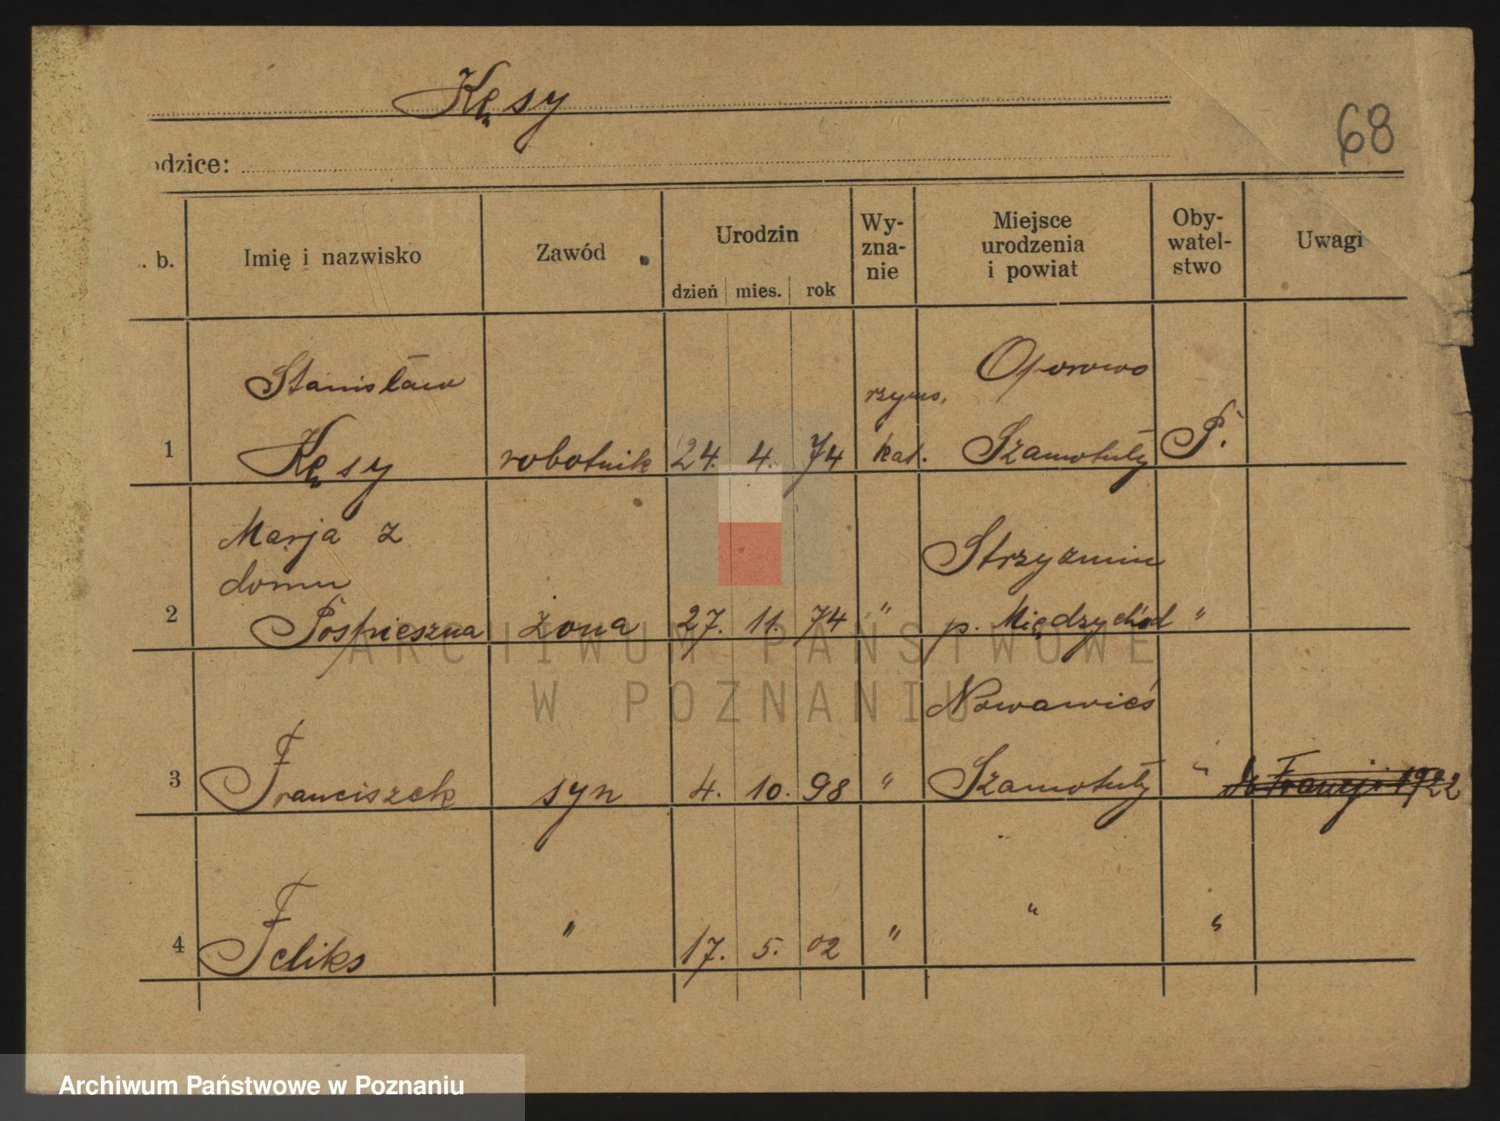 Kęsy
68
odzice:
. b.
Imię i nazwisko
Zawód
Urodzin
dzień mies. rok
Wy-
zna-
nie
Miejsce
urodzenia
i powiat
Oby-
watel-
stwo
Uwagi
Stanisław
Oporowo
rzyms.
1 Kęsy robotnik 24. 4. 74 kat. Szamotuły P.
Marja z
domu
Strzyżmin
2 Pośpieszna żona 27. 11. 74 " p. Międzychód "
Nowawieś
3 Franciszek syn 4. 10. 98 " Szamotuły " do Francji 1922
4 Feliks " 17. 5. 02 " " "
ARCHIWUM PAŃSTWOWE
W POZNANIU
Archiwum Państwowe w Poznaniu